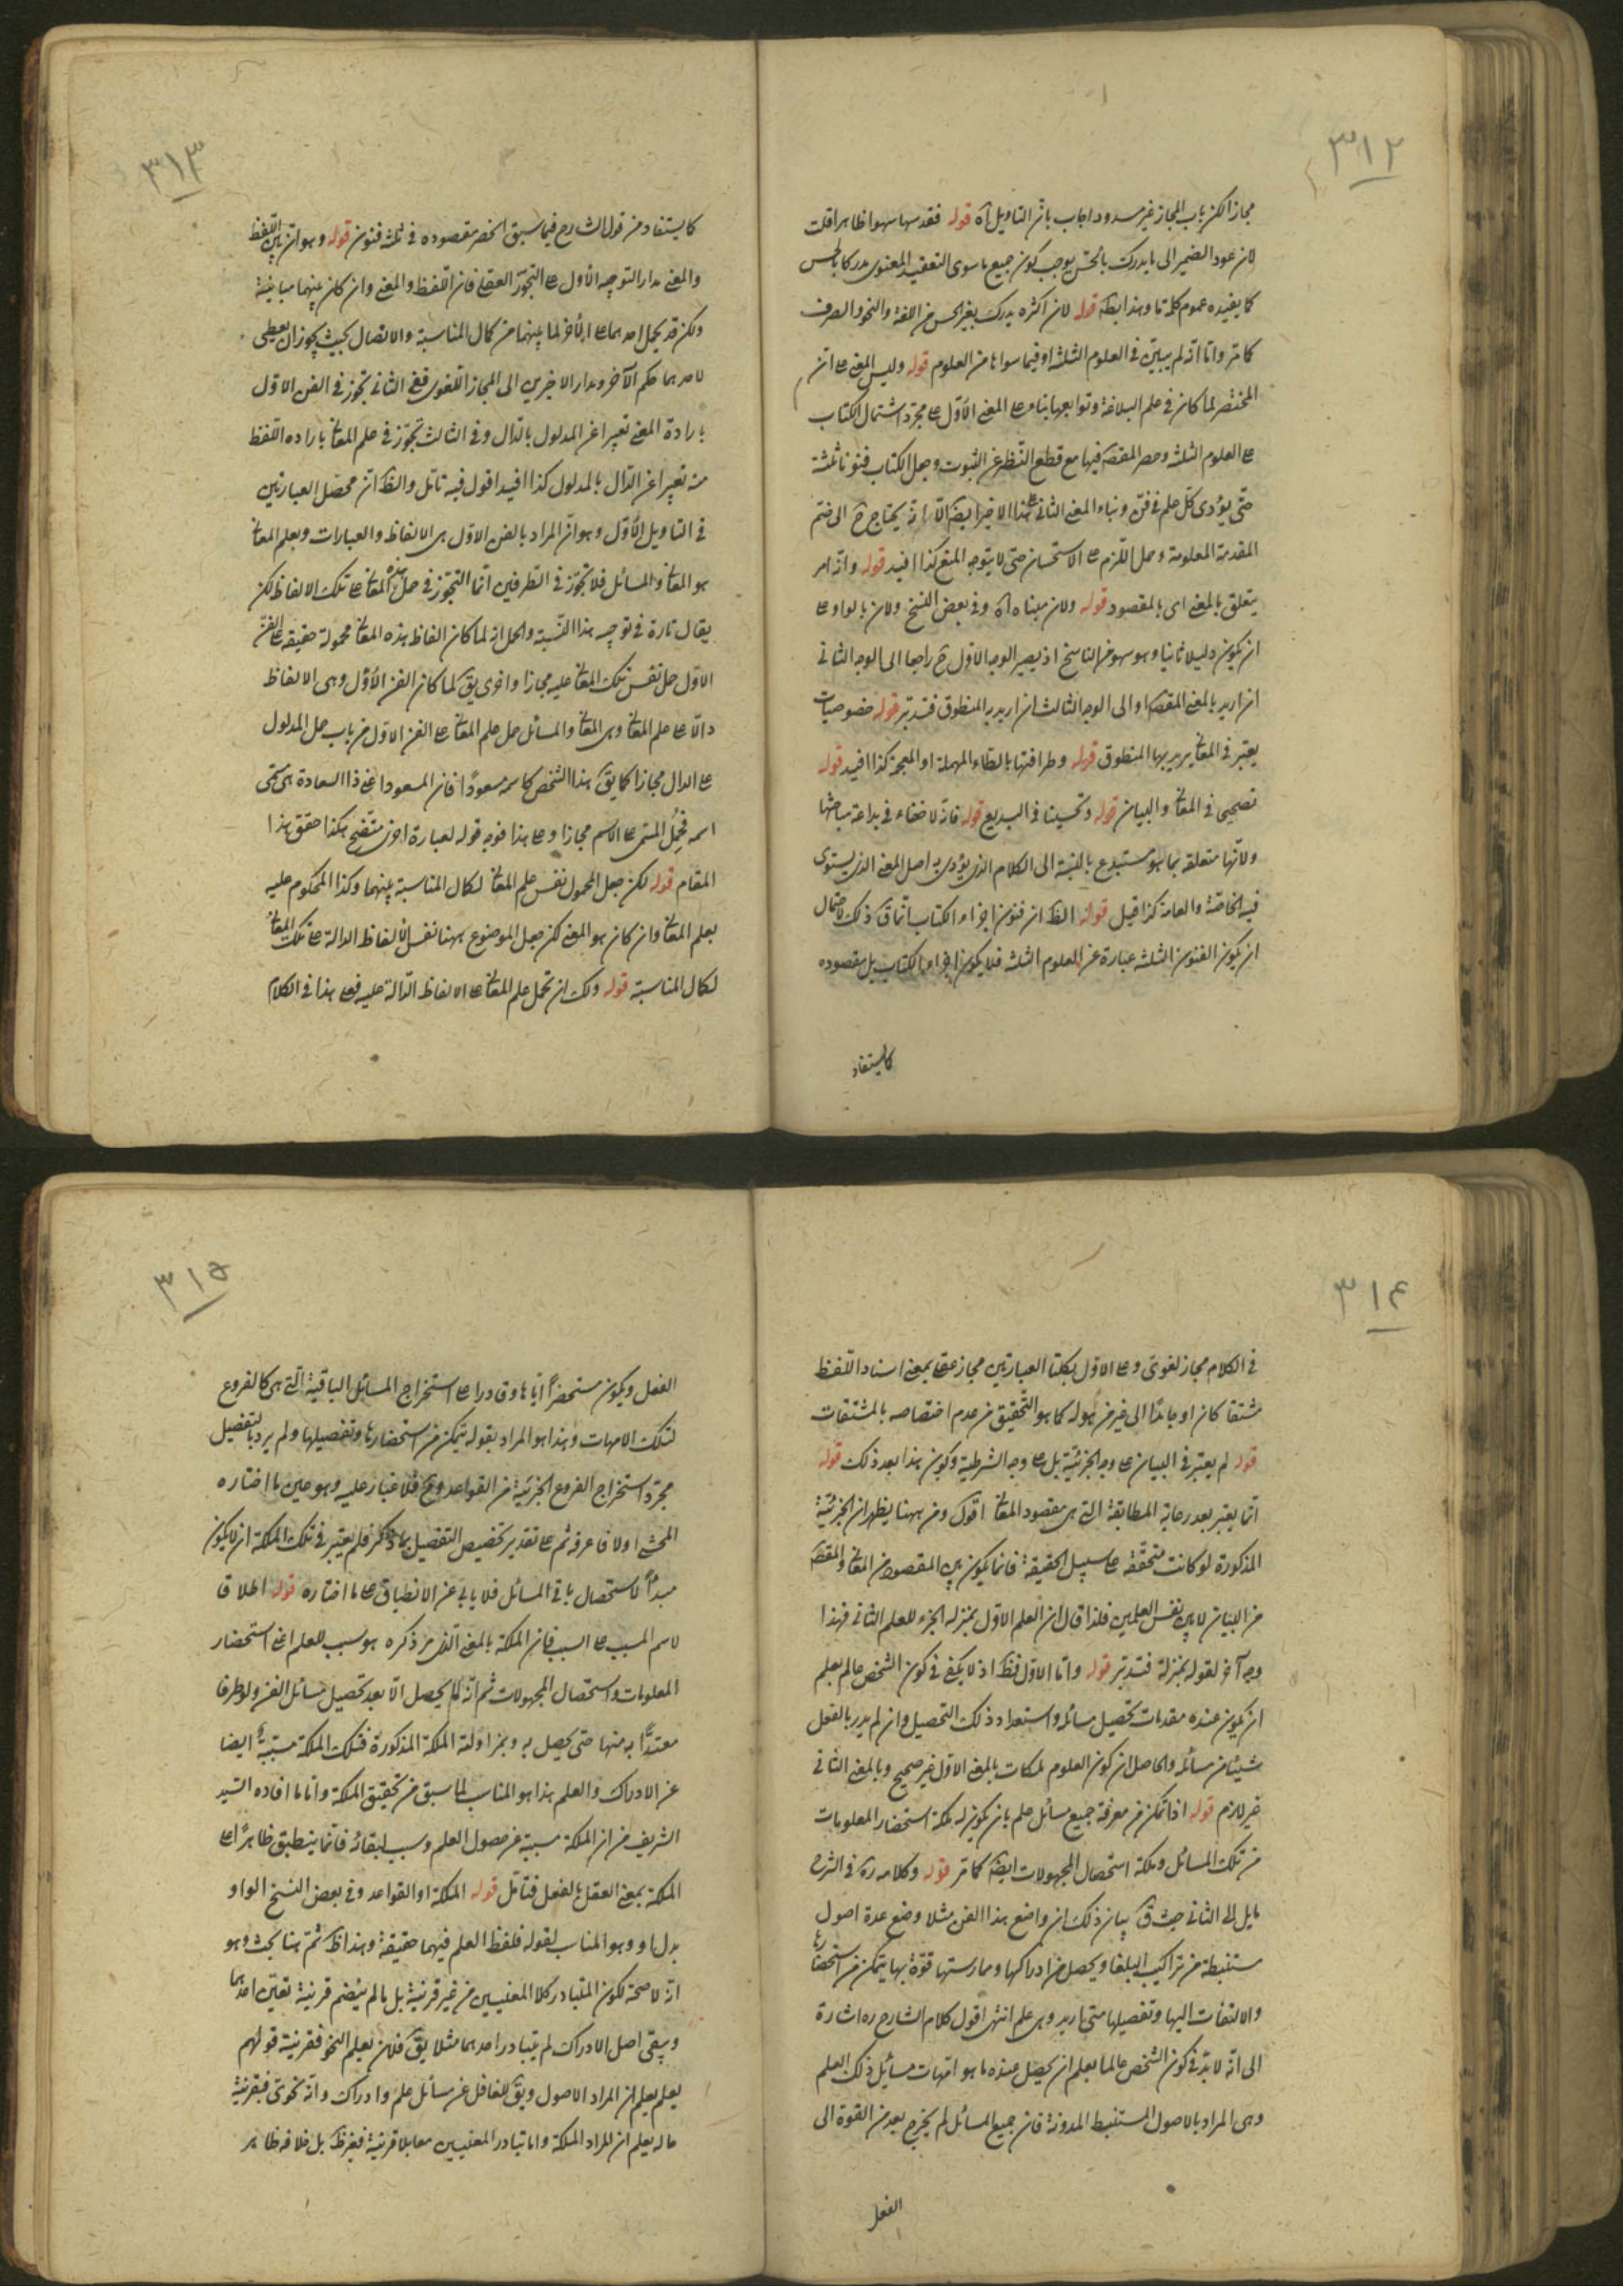 ٣١٢
مجازا لكن باب المجاز غير مسدود اجاب بان التاويل اه قوله فقد سها سهوا ظاهرا قلت
لان عود الضمير الى ما يدرك بالحس يوجب كون جميع ما سوى التعقيد المعنوى مدركا بالحس
كما يفيده عموم كلمة ما وهذا بط قوله لان اكثره يدرك بغير الحس من اللغة والنحو والصرف
كما مر واما انه لم يبين فى العلوم الثلثة او فيما سواها من العلوم قوله وليس المعنى على ان
المختصر لما كان فى علم البلاغة وتوابعها بناء على المعنى الاول على مجرد اشتمال الكتاب
على العلوم الثلثة وحصر المقصد فيها مع قطع النظر عن الثبوت وجعل الكتاب فنونا ثلثة
حتى يؤدى كل علم فى فن وبناء المعنى الثانى على هذا الاخير ايضا الا انه يحتاج ح الى ضم
المقدمة المعلومة وحمل اللزوم على الاستحسان حتى لا يتوجه المنع كذا افيد قوله وانه امر
يتعلق بالمعنى اى بالمقصود قوله ولان مبناه اه وفى بعض النسخ ولان بالواو وعلى
ان يكون دليلا ثانيا وهو سهو من الناسخ اذ يصير الوجه الاول ح راجعا الى الوجه الثانى
ان اريد بالمعنى المقصد او الى الوجه الثالث ان اريد به المنطوق فتدبر قوله خصوصيات
يعتبر فى المعانى يريد بها المنطوق قوله وطرافتها بالطاء المهملة او المعجمة كذا افيد قوله
تصحيحى فى المعانى والبيان قوله وتحسينا فى البديع قوله فانه لا خفاء فى بداعة مباحثها
ولانها متعلقة بما هو مستبدع بالنسبة الى الكلام الذى يؤدى به اصل المعنى الذى يستوى
فيه الخاصة والعامة كذا قيل قوله الظ ان فنون اجزاء الكتاب انما ق ذلك لاحتمال
ان يكون الفنون الثلثة عبارة عن العلوم الثلثة فلا يكون اجزاء الكتاب بل مقصوده
كما يستفاد
٣١٣
كما يستفاد من قول الشارح فيما سبق انحصر مقصوده فى ثلثة فنون قوله وهو ان بين اللفظ
والمعنى مدار التوجيه الاول على التجوز العقلى فان اللفظ والمعنى وان كان بينهما مباينة
ولكن قد يحمل احدهما على الآخر لما بينهما من كمال المناسبة والاتصال بحيث يجوز ان يعطى
لاحدهما حكم الآخر ومدار الاخيرين الى المجاز اللغوى ففى الثانى تجوز فى الفن الاول
بارادة المعنى تعبيرا عن المدلول بالدال وفى الثالث تجوز فى علم المعانى بارادة اللفظ
منه تعبيرا عن الدال بالمدلول كذا افيد اقول فيه تامل والظ ان محصل العبارتين
فى التاويل الاول وهو ان المراد بالفن الاول هى الالفاظ والعبارات وبعلم المعانى
هو المعانى والمسائل فلا تجوز فى الطرفين انما التجوز فى حمل هذه المعانى على تلك الالفاظ لكن
يقال تارة فى توجيه هذا النسبة والحمل انه لما كان الفاظ هذه المعانى محمولة حقيقة على الفن
الاول حمل نفس تلك المعانى عليه مجازا واخرى يق لما كان الفن الاول وهى الالفاظ
دالا على علم المعانى وهى المعانى والمسائل حمل علم المعانى على الفن الاول من باب حمل المدلول
على الدال مجازا كما يق هذا الشخص كاسمه مسعودا فان المسعود اعنى ذا السعادة هى مسمى
اسمه فحمل المسمى على الاسم مجازا وعلى هذا فوجه قوله لعبارة اخرى متضح هكذا حقق هذا
المقام قوله لكن جعل المحمول نفس علم المعانى لكمال المناسبة بينهما وكذا المحكوم عليه
بعلم المعانى وان كان هو المعنى لكن جعل الموضوع ههنا نفس الالفاظ الدالة على تلك المعانى
لكمال المناسبة قوله ولك ان تحمل علم المعانى على الالفاظ الدالة عليه فعلى هذا فى الكلام
٣١٤
فى الكلام مجاز لغوى وعلى الاول بكلتا العبارتين مجاز عقلى بمعنى اسناد اللفظ
مشتقا كان او جامدا الى غير من هو له كما هو التحقيق من عدم اختصاصه بالمشتقات
قوله لم يعتبر فى البيان على وجه الجزئية بل على وجه الشرطية وكون هذا بعد ذلك قوله
انما يعتبر بعد رعاية المطابقة التى هى مقصود المعانى اقول ومن ههنا يظهر ان الجزئية
المذكورة لو كانت متحققة على سبيل الحقيقة فانما يكون بين المقصود من المعانى والمقصد
من البيان لا بين نفس العلمين فلذا قال ان العلم الاول بمنزلة الجزء للعلم الثانى فهذا
وجه آخر لقوله بمنزلة فتدبر قوله واما الاول فظ اذ لا يكفى فى كون الشخص عالم بعلم
ان يكون عنده مقدمات تحصيل مسائله واستعداد ذلك التحصيل وان لم يدر بالفعل
شيئا من مسائله والحاصل ان كون العلوم لملكات بالمعنى الاول غير صحيح وبالمعنى الثانى
غير لازم قوله اذا تمكن من معرفة جميع مسائل علم بان يكون له ملكة استحضار المعلومات
من تلك المسائل وملكة استحصال المجهولات ايضا كما مر قوله وكلامه ره فى الشرح
مايل الى الثانى حيث ق بيان ذلك ان واضع هذا الفن مثلا وضع عدة اصول
مستنبطة من تراكيب البلغا ويحصل من ادراكها وممارستها قوة بها يتمكن من استحضارها
والالتفات اليها وتفصيلها متى اريد وهى علم انتهى اقول كلام الشارح ره اشارة
الى انه لا بد فى كون الشخص عالما بعلم ان يحصل عنده ما هو امهات مسائل ذلك العلم
وهى المراد بالاصول المستنبط المدونة فان جميع المسائل لم يخرج بعد من القوة الى
الفعل
٣١٥
الفعل ويكون مستحضرا اياها وقادرا على استخراج المسائل الباقية التى هى كالفروع
لتلك الامهات وهذا هو المراد بقوله يتمكن من استحضارها وتفصيلها ولم يرد بالتفصيل
مجرد استخراج الفروع الجزئية من القواعد وح فلا غبار عليه وهو عين ما اختاره
المحشى اولا فاعرفه ثم على تقدير تخصيص التفصيل بما ذكر فلم يعتبر فى تلك الملكة ان لا يكون
مبدأ لاستحصال باقى المسائل فلا يابى عن الانطباق على ما اختاره قوله اطلاقا
لاسم المسبب على السبب فان الملكة بالمعنى الذى مر ذكره هو سبب للعلم اعنى استحضار
المعلومات واستحصال المجهولات ثم انه لما لم يحصل الا بعد تحصيل مسائل الفن ولو طرفا
معتدا به منها حتى يحصل به وبمزاولته الملكة المذكورة فتلك الملكة مسببة ايضا
عن الادراك والعلم هذا هو المناسب لما سبق من تحقيق الملكة واما ما افاده السيد
الشريف من ان الملكة مسببة عن حصول العلم وسبب لبقائه فانما ينطبق ظاهرا على
الملكة بمعنى العقل بالفعل فتامل قوله الملكة او القواعد وفى بعض النسخ الواو
بدل او وهو المناسب لقوله فلفظ العلم فيهما حقيقة وهذا ظ ثم هنا بحث وهو
انه لا صحة لكون المتبادر كلا المعنيين من غير قرينة بل ما لم ينضم قرينة تعين احدهما
ويبقى اصل الادراك لم يتبادر احدهما مثلا يق فلان يعلم النحو فقرينة قولهم
يعلم يعلم ان المراد الاصول ويق للغافل عن مسائل علم وادراك وانه نحوى فبقرينة
حاله يعلم ان المراد الملكة واما تبادر المعنيين معا بلا قرينة فغير ظ بل خلافه ظاهر